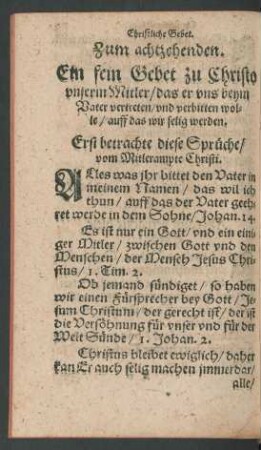 Christliche Gebet.
Zum achtzehenden.
Ein fein Gebet zu Christo
vnserm Mitler/ das er vns beym
Vater vertreten/ vnd verbitten wol-
le/ auff das wir selig werden.
Erst betrachte diese Sprüche/
vom Mitlerampte Christi.
ALles was jhr bittet den Vater in
meinem Namen/ das wil ich
thun/ auff das der Vater geeh-
ret werde in dem Sohne/ Johan. 14.
Es ist nur ein Gott/ vnd ein eini-
ger Mitler/ zwischen Gott vnd den
Menschen/ der Mensch Jesus Chri-
stus/ 1. Tim. 2.
Ob jemand sündiget/ so haben
wir einen Fürsprecher bey Gott/ Je-
sum Christum/ der gerecht ist/ der ist
die Versöhnung für vnser vnd für der
Welt Sünde/ 1. Johan. 2.
Christus bleibet ewiglich/ daher
kan Er auch selig machen jmmerdar/
alle/